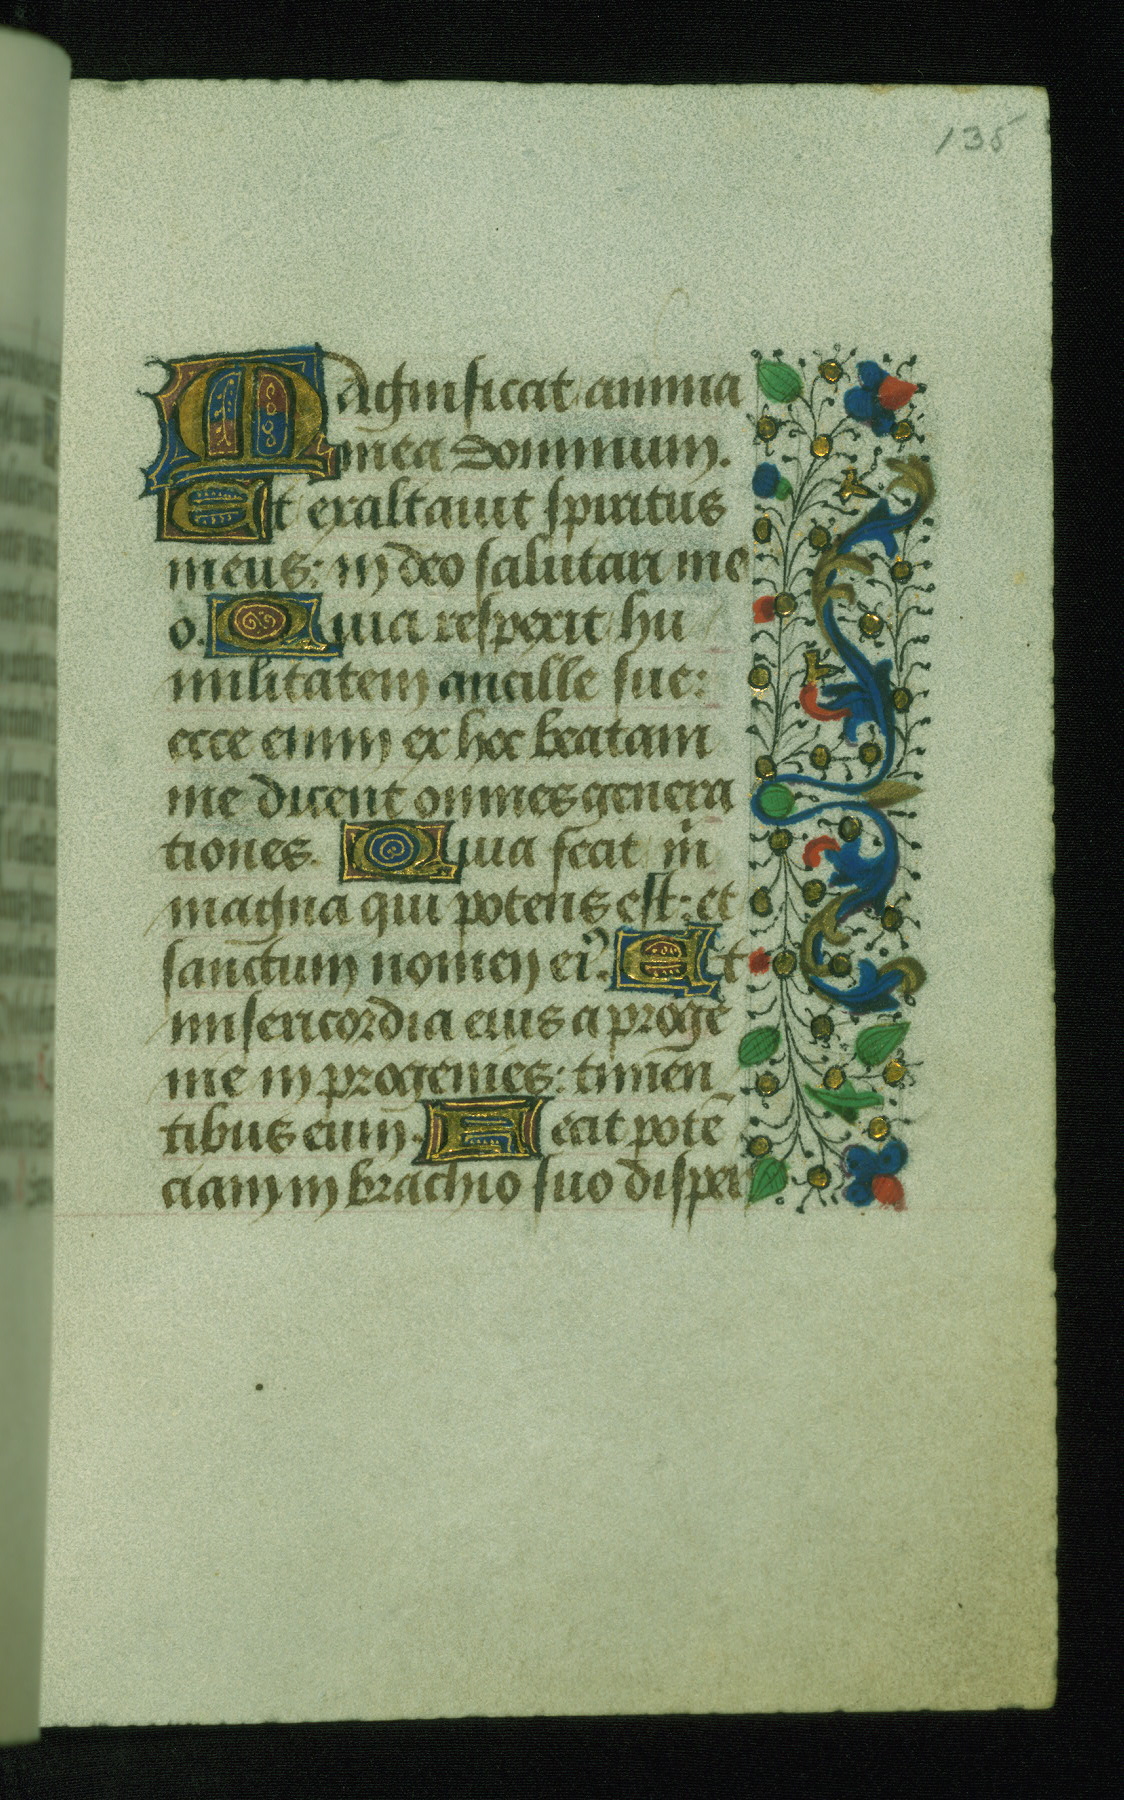 135
Magnificat anima
mea dominum.
Et exaltavit spiritus
meus: in deo salutari me
o. Quia respexit hu
militatem ancille sue:
ecce enim ex hoc beatam
me dicent omnes genera
tiones. Quia fecit m̄
magna qui potens est: et
sanctum nomen eiꝰ. Et
misericordia eius a proge
nie in progenies: timen
tibus eum. Fecit potē
ciam in brachio suo disper